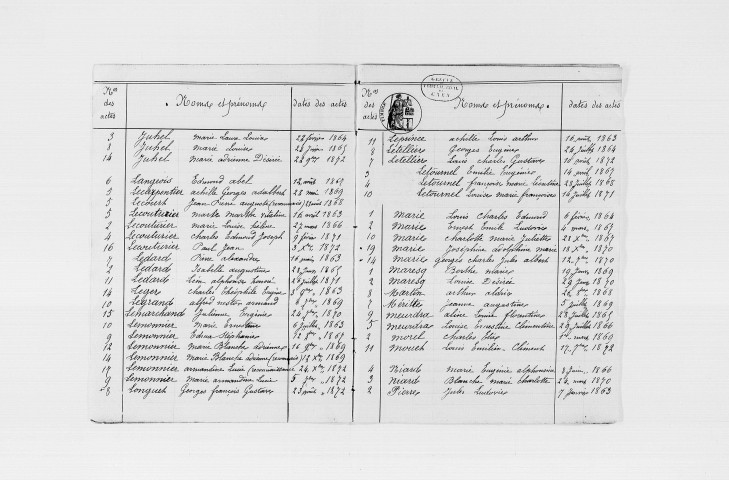 Nos des actes
Noms et prénoms
dates des actes
3 Juhel marie Laure Louise 22 février 1864
8 Juhel marie Louise 24 Juin 1865
14 Juhel marie adrienne Désirée 24 9bre 1872
6 Langevois Edmond abel 12 août 1865
3 Lecarpentier achille Georges adalbert 28 mai 1869
5 Lecouturier marthe 16 avril 1863
2 Lecouturier marie Louise 27 mars 1866
4 Lecouturier Charles Edmond Joseph 9 février 1871
16 Lecouturier Paul Jean 3 Xbre 1872
7 Ledard Pierre Alexandre 16 mai 1863
2 Ledard Isabelle augustine 28 Juin 1865
11 Ledard Léon alphonse 26 Juillet 1871
14 Leger Charles Théophile Eugène 3 9bre 1863
10 Legrand alfred nestor armand 1869
13 Lemarchand Julienne Eugénie 24 7bre 1870
10 Lemonnier marie Ernestine 6 Juillet 1863
9 Lemonnier 1865
12 Lemonnier marie Blanche adrienne 16 9bre 1869
14 Lemonnier Marie Blanche 1869
17 Lemonnier armandine Lucie (reconnaissance) 24 Xbre 1872
9 Lemonnier marie armandine Lucie 5 7bre 1872
8 Longuet Georges françois Gustave 23 août 1872
Nos des actes
Noms et prénoms
dates des actes
TIMBRE
11 Leprince achille Louis arthur 16 août 1863
8 Letellier Georges Eugène 24 Juillet 1864
7 Letellier Louis Charles Gustave 10 avril 1872
3 Letournel Emilie Eugénie 14 avril 1865
4 Letournel françois marie 28 Juillet 1868
10 Letournel Louise marie françoise 16 Juillet 1871
1 Marie Louis Charles Edmond 6 février 1864
2 Marie Ernest Emile Ludovic 4 mars 1865
10 Marie Charlotte marie Juliette 28 Xbre 1867
19 Marie Joséphine marie 18 Xbre 1870
14 Marie georges charles Jules albert 12 7bre 1870
1 Maresq Berthe marie 19 Janv 1869
2 Maresq Louise Désirée 29 Janv 1870
8 Martin arthur 26 8bre 1868
7 Mérille Jeanne augustine 5 Juillet 1869
9 meurdra aline Louise florentine 28 Juillet 1865
5 meurdra Louise Ernestine Clémentine 29 Juillet 1866
2 morel Charles 1er mars 1869
11 mouch Louis Emilien Clément 17 7bre 1872
4 Niard marie Eugénie alphonsine 8 Juin 1866
3 Niard Blanche marie Charlotte 24 mars 1870
2 Pierre Jules Ludovic 7 Janvier 1863